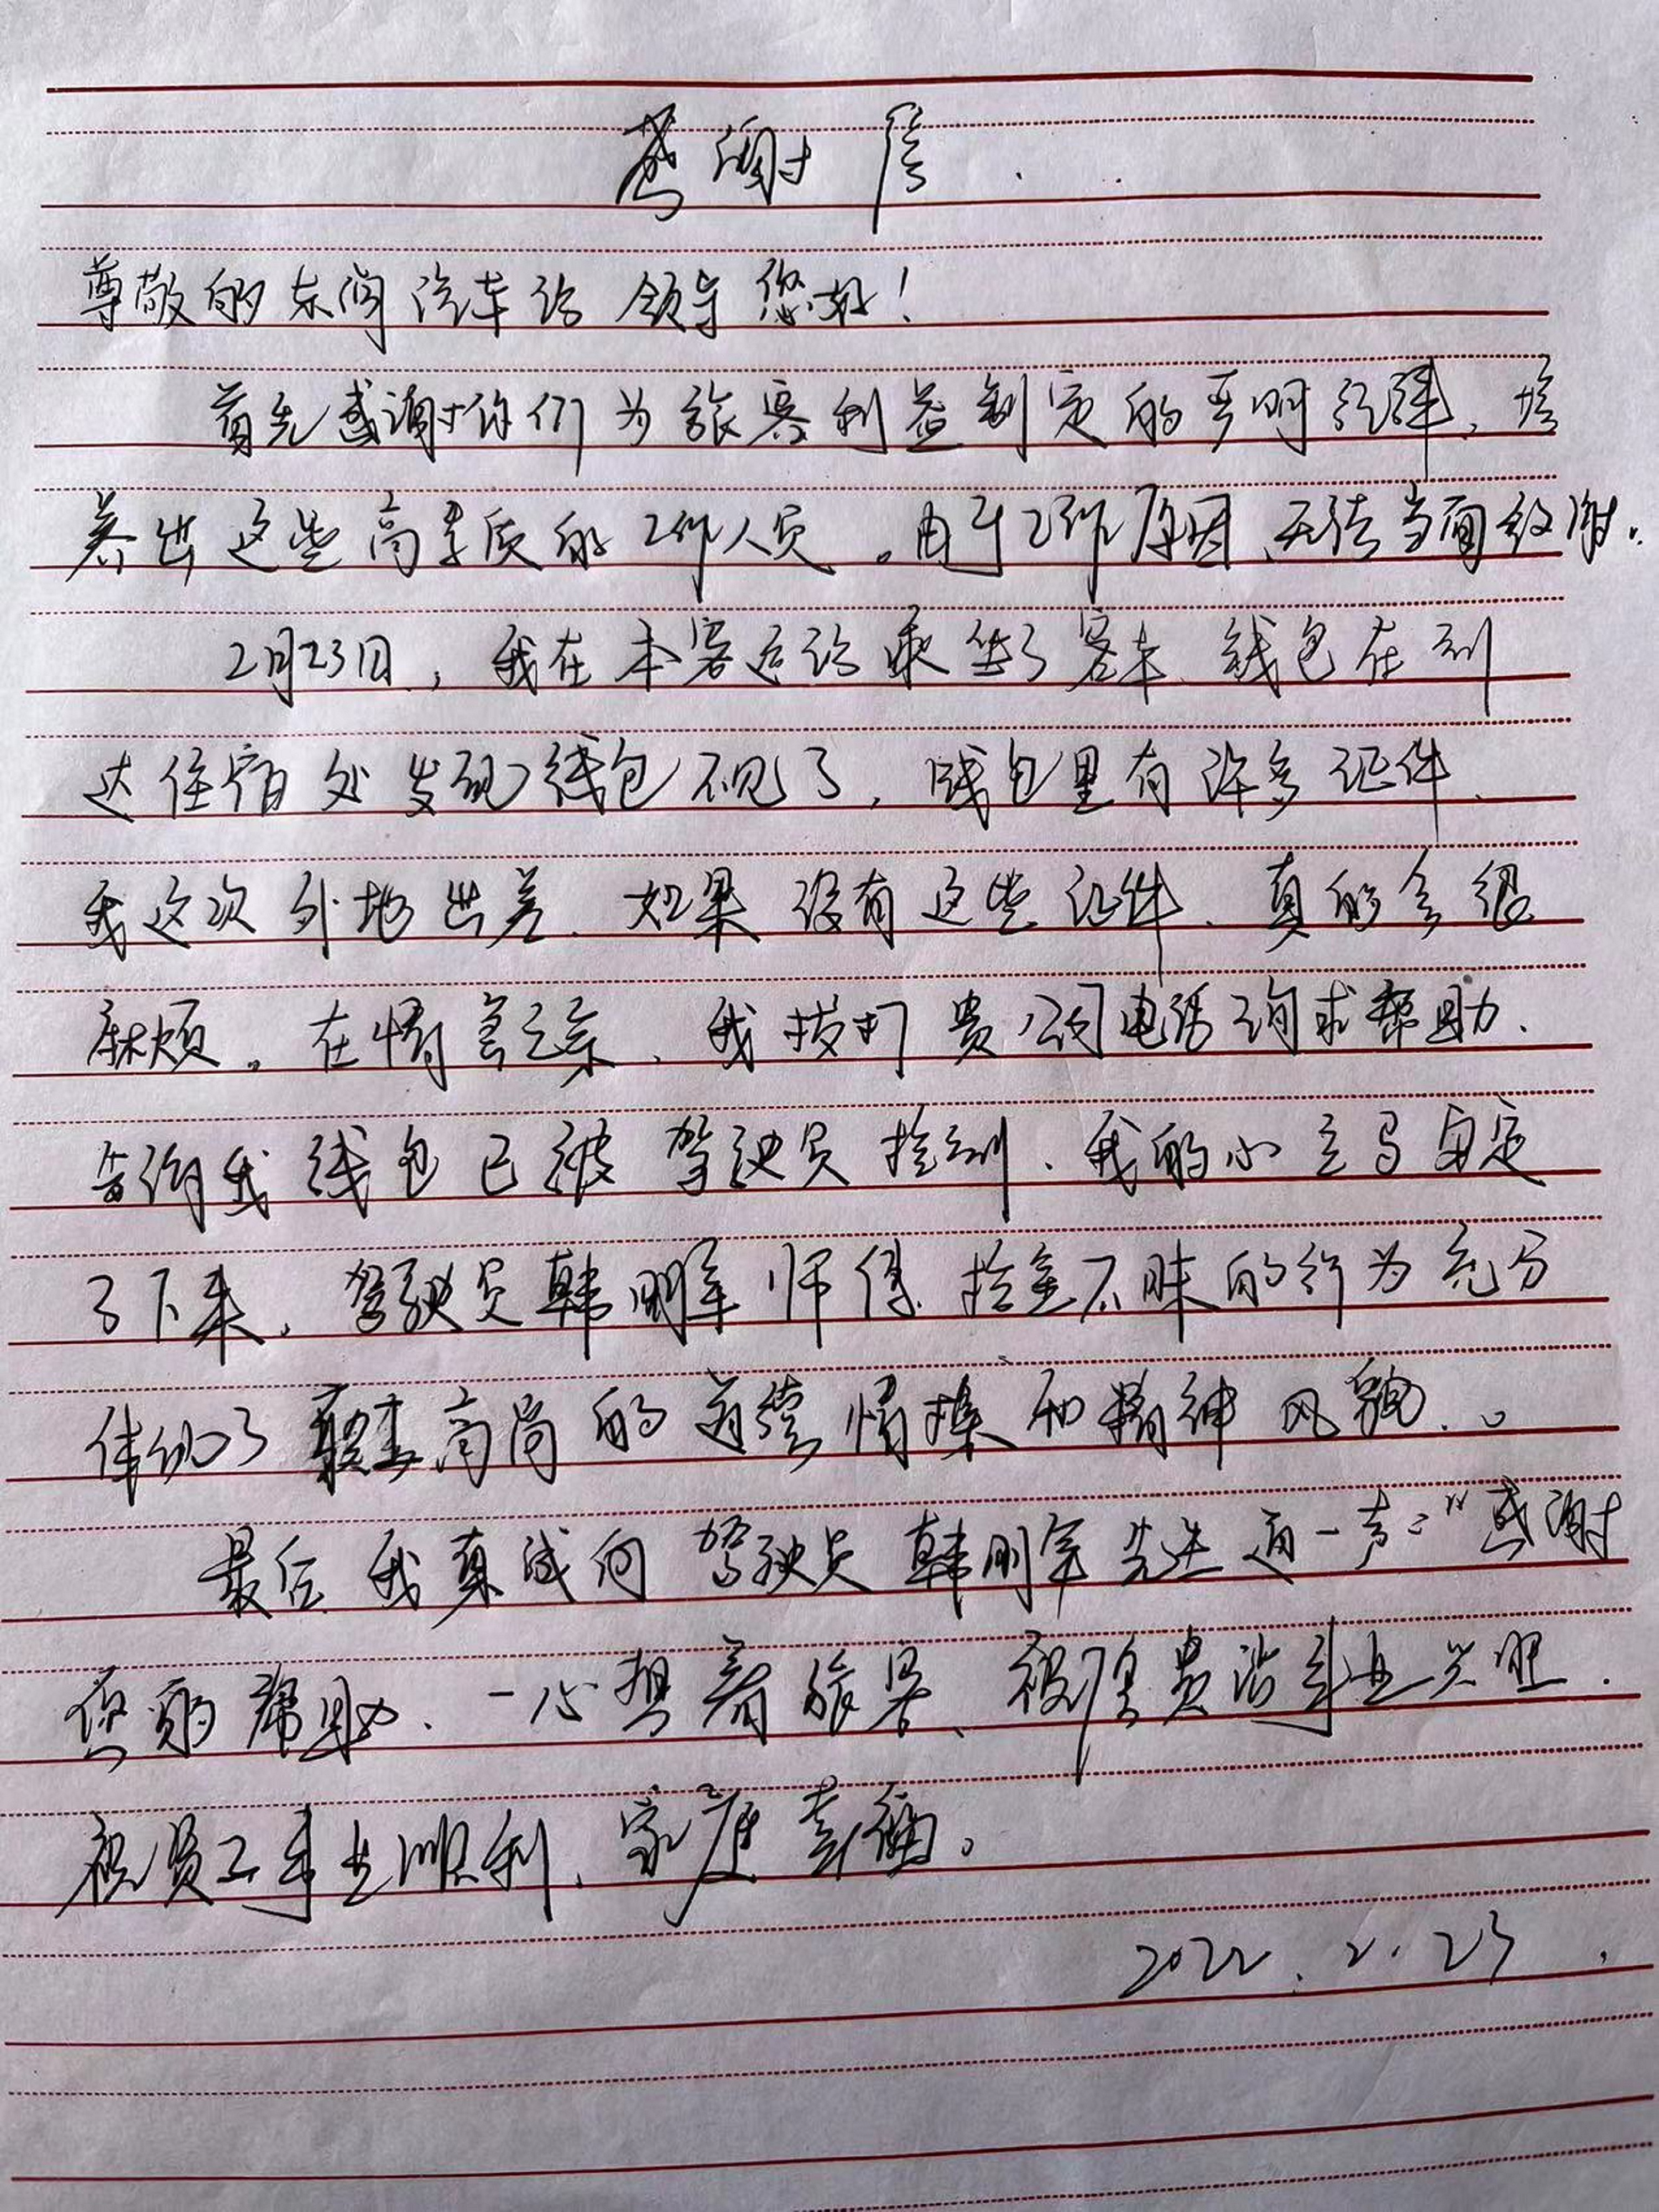 感谢信.
尊敬的东闸汽车站领导您好！
首先感谢你们为旅客利益制定的严明纪律、培
养出这些高素质的工作人员。由于工作原因、无法当面致谢.
2月23日,我在本客运站乘坐了客车、钱包在到
达住宿处发现钱包不见了,钱包里有许多证件、
我这次外地出差、如果没有这些证件、真的会很
麻烦。在情急之余、我拨打贵公司电话询求帮助.
告诉我钱包已被驾驶员捡到、我的心立马安定
了下来,驾驶员韩刚军师傅拾金不昧的行为充分
体现了高尚的道德情操和精神风貌。
最后我真诚向驾驶员韩刚军先生道一声:“感谢
您的帮助、一心想着旅客、祝愿贵站事业兴旺.
祝员工事业顺利、家庭幸福。
2022.2.23.